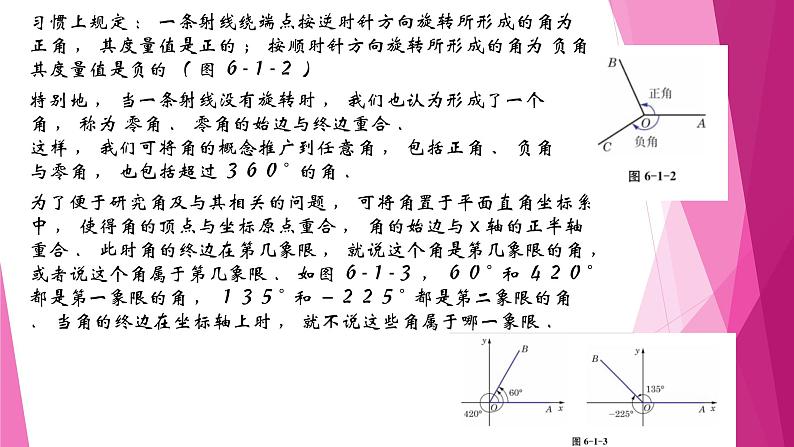 习惯上规定： 一条射线绕端点按逆时针方向旋转所形成的角为
正角， 其度量值是正的； 按顺时针方向旋转所形成的角为 负角
其度量值是负的 （ 图 6-1-2 ）
特别地， 当一条射线没有旋转时， 我们也认为形成了一个
角， 称为 零角． 零角的始边与终边重合．
这样， 我们可将角的概念推广到任意角， 包括正角、 负角
与零角， 也包括超过 360°的角．
为了便于研究角及与其相关的问题， 可将角置于平面直角坐标系
中， 使得角的顶点与坐标原点重合， 角的始边与x轴的正半轴
重合． 此时角的终边在第几象限， 就说这个角是第几象限的角，
或者说这个角属于第几象限． 如图 6-1-3， 60°和 420°
都是第一象限的角， 135°和 -225°都是第二象限的角
． 当角的终边在坐标轴上时， 就不说这些角属于哪一象限．
B
正角
O
A
C
负角
图 6-1-2
y
B
60°
420°
O
A
x
y
B
135°
-225°
O
A
x
图 6-1-3